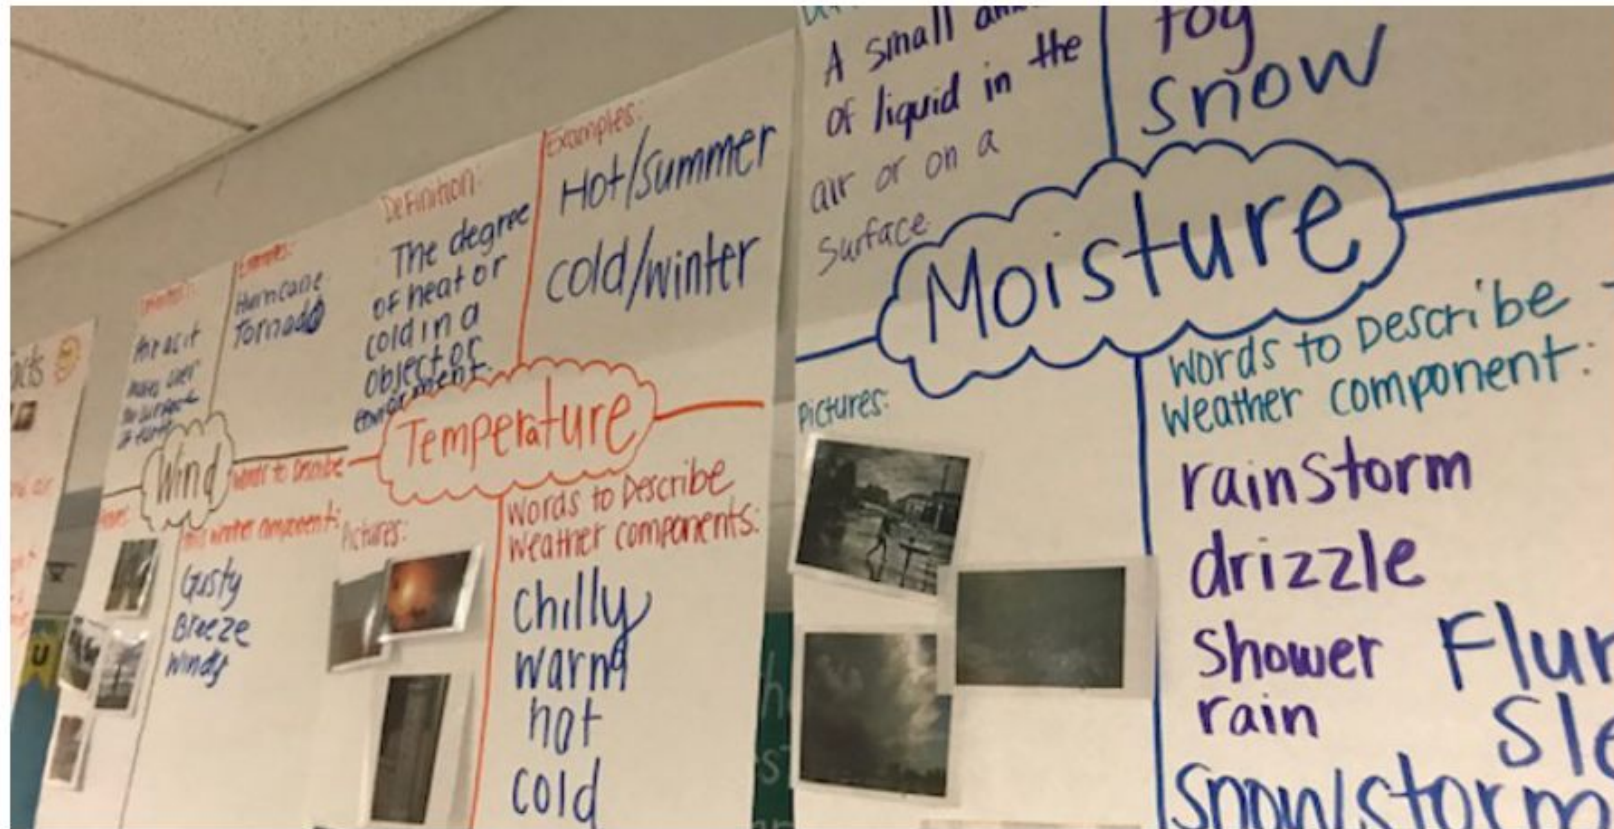 acts
Definition:
Air as it
moves over
the surface
of earth
Examples:
Hurricane
Tornado
Wind
Words to Describe
this weather components:
Gusty
Breeze
Windy
Definition:
The degree
of heat or
cold in a
object or
environment.
Examples:
Hot/summer
cold/winter
Temperature
Pictures:
Words to Describe
Weather components:
Chilly
warm
hot
cold
A small
of liquid in the
air or on a
Surface
fog
snow
Moisture
Pictures:
Words to Describe
Weather component:
rainstorm
drizzle
shower
Flur
rain
Sle
Snow/storm
U